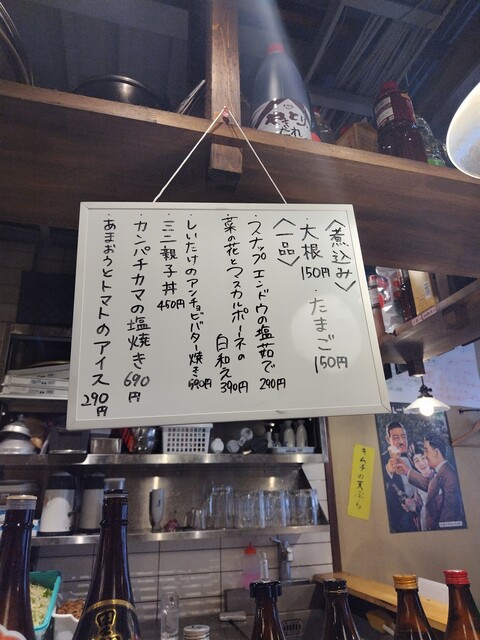 〈煮込み〉
大根 150円
たまご 150円
〈一品〉
・スナップエンドウの塩茹で 290円
・菜の花とマスカルポーネの白和え 390円
・しいたけのアンチョビバター焼き 590円
・ミニ親子丼 450円
・カンパチカマの塩焼き 690円
・あまおうとトマトのアイス 290円
キムチの天ぷら
黒